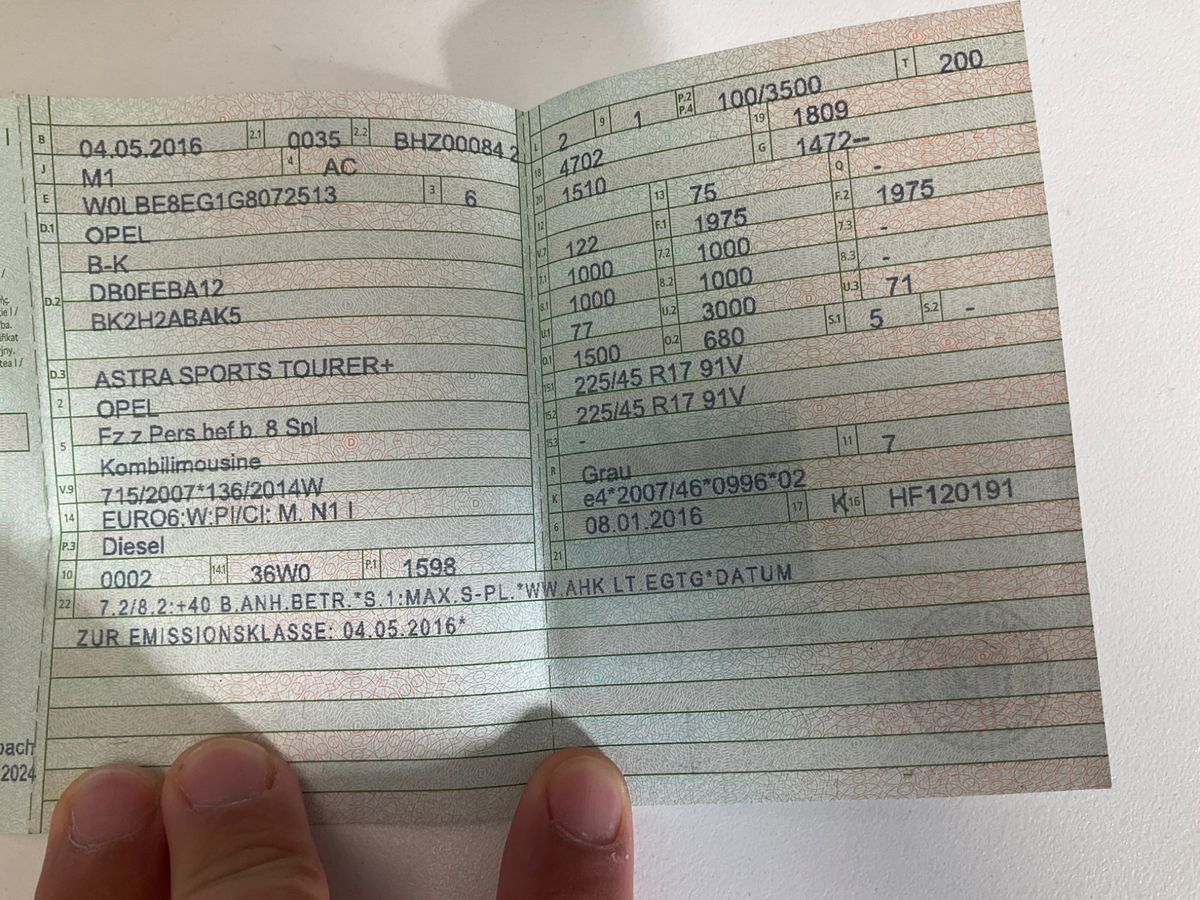 B 04.05.2016 2.1 0035 2.2 BHZ00084 2
J M1 4 AC
E W0LBE8EG1G8072513 3 6
D.1 OPEL
B-K
D.2 DB0FEBA12
BK2H2ABAK5
D.3 ASTRA SPORTS TOURER+
2 OPEL
5 Fz.z.Pers.bef.b. 8 Spl
Kombilimousine
V.9 715/2007*136/2014W
14 EURO6;W;PI/CI; M, N1 I
P.3 Diesel
10 0002 14.1 36W0 P.1 1598
22 7.2/8.2:+40 B.ANH.BETR.*S.1:MAX.S-PL.*WW.AHK LT.EGTG*DATUM
ZUR EMISSIONSKLASSE: 04.05.2016*
L 2 9 1 P.2 P.4 100/3500 T 200
18 4702 19 1809
20 1510 G 1472--
12 13 75 Q -
V.7 122 F.1 1975 F.2 1975
7.1 1000 7.2 1000 7.3 -
8.1 1000 8.2 1000 8.3 -
U.1 77 U.2 3000 U.3 71
O.1 1500 O.2 680 S.1 5 S.2 -
15.1 225/45 R17 91V
15.2 225/45 R17 91V
15.3 -
R Grau 11 7
K e4*2007/46*0996*02
6 08.01.2016 17 K 16 HF120191
21
ba.
jny.
bach
2024